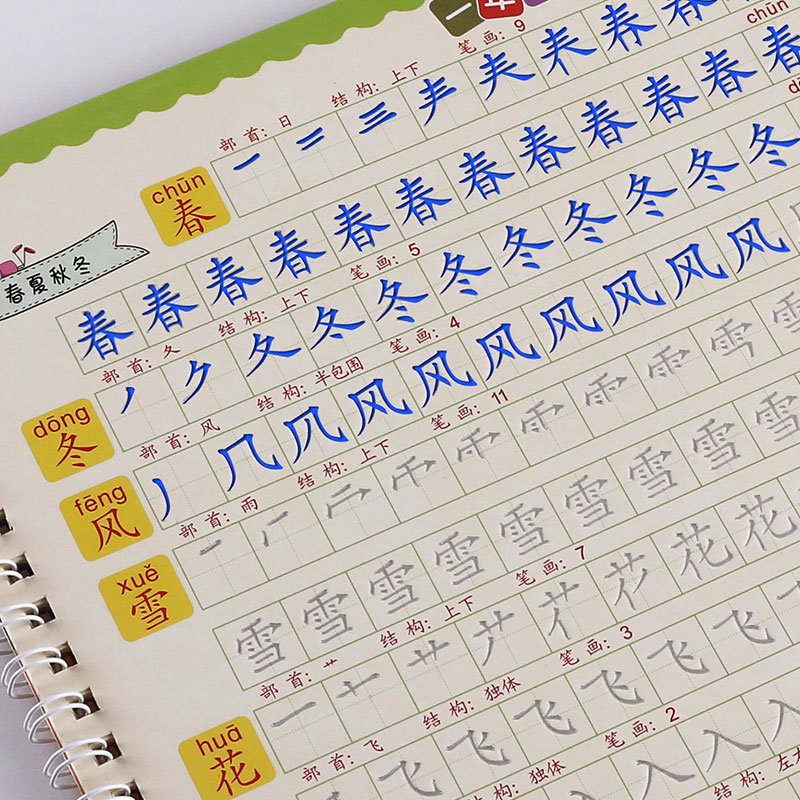 一年
部首:日 结构:上下 笔画:9
chūn
春
一 二 三 春
春夏秋冬
chūn
春 春 春 春 春 春 春 春 春 春 春
部首:夂 结构:上下 笔画:5
dōng
冬
丿 ク 夂 冬 冬 冬 冬 冬 冬 冬 冬
部首:风 结构:半包围 笔画:4
fēng
风
丿 几 风 风 风 风 风 风 风
部首:雨 结构:上下 笔画:11
xuě
雪
雪 雪 雪 雪 雪 雪 雪 雪 雪
部首:艹 结构:上下 笔画:7
huā
花
一 艹 花 花
部首:飞 结构:独体 笔画:3
飞 飞 飞 飞 飞 飞
结构:独体 笔画:2
入 入 入
结构:左